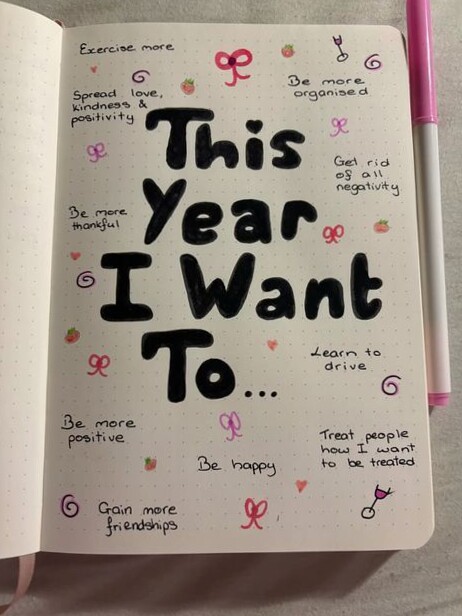 Exercise more
Spread love,
kindness &
positivity
Be more
organised
This
Get rid
of all
negativity
Be more
thankful
Year
I Want
To...
Learn to
drive
Be more
positive
Be happy
Treat people
how I want
to be treated
Gain more
friendships